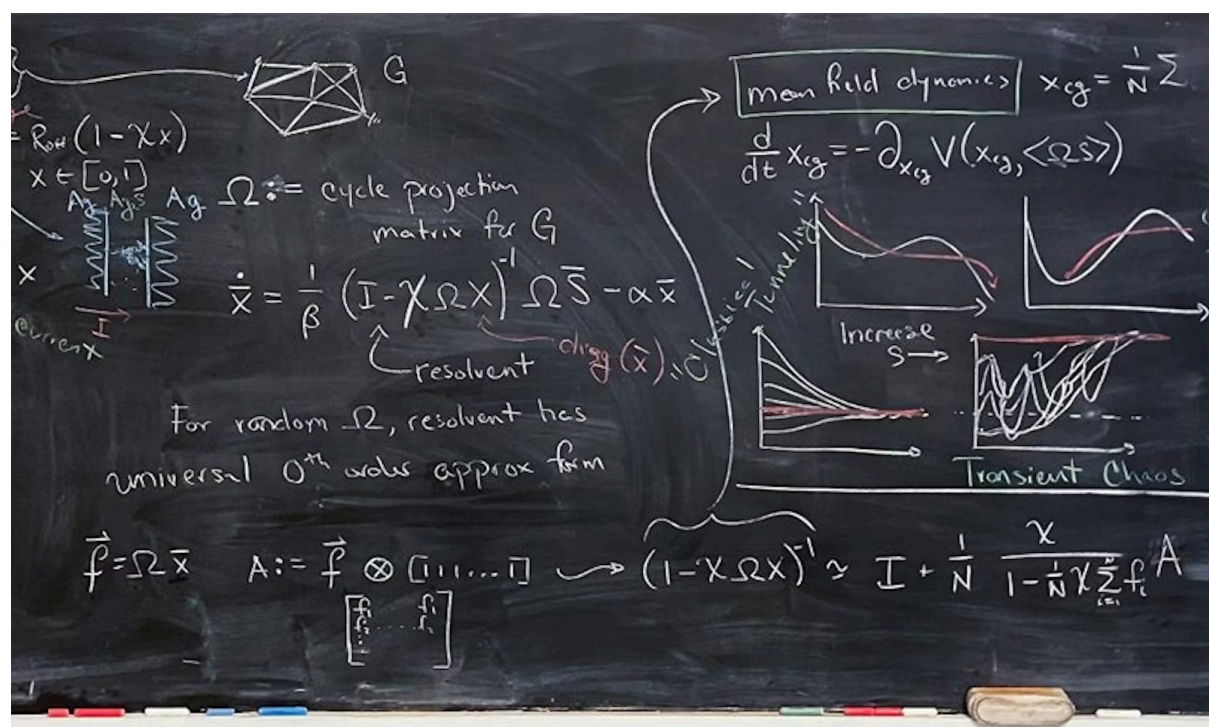 G
= R_off (1-χx)
x ∈ [0,1]
Ag Ag₂S Ag
I
current
x
Ω := cycle projection
matrix for G
ẋ = 1/β (I-χΩX)⁻¹ ΩS̄ - αx̄
resolvent
diag(x̄)
For random Ω, resolvent has
universal 0th order approx form
f⃗ = Ωx̄ A := f⃗ ⊗ [111...1] → (1-χΩX)⁻¹ ≃ I + 1/N χ/(1-1/N χ Σ_{i=1}^{N} f_i) A
f₁ f₁
f₂ ..... f₂
mean field dynamics x_cg = 1/N Σ
d/dt x_cg = -∂_{x_cg} V(x_cg, <ΩS>)
"Classical
Tunneling"
Increase
S →
Transient Chaos